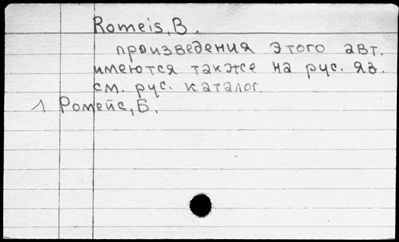 Romeis, B.
произведения этого авт.
имеются также на рус. яз.
см. рус. каталог.
1 Ромейс, Б.